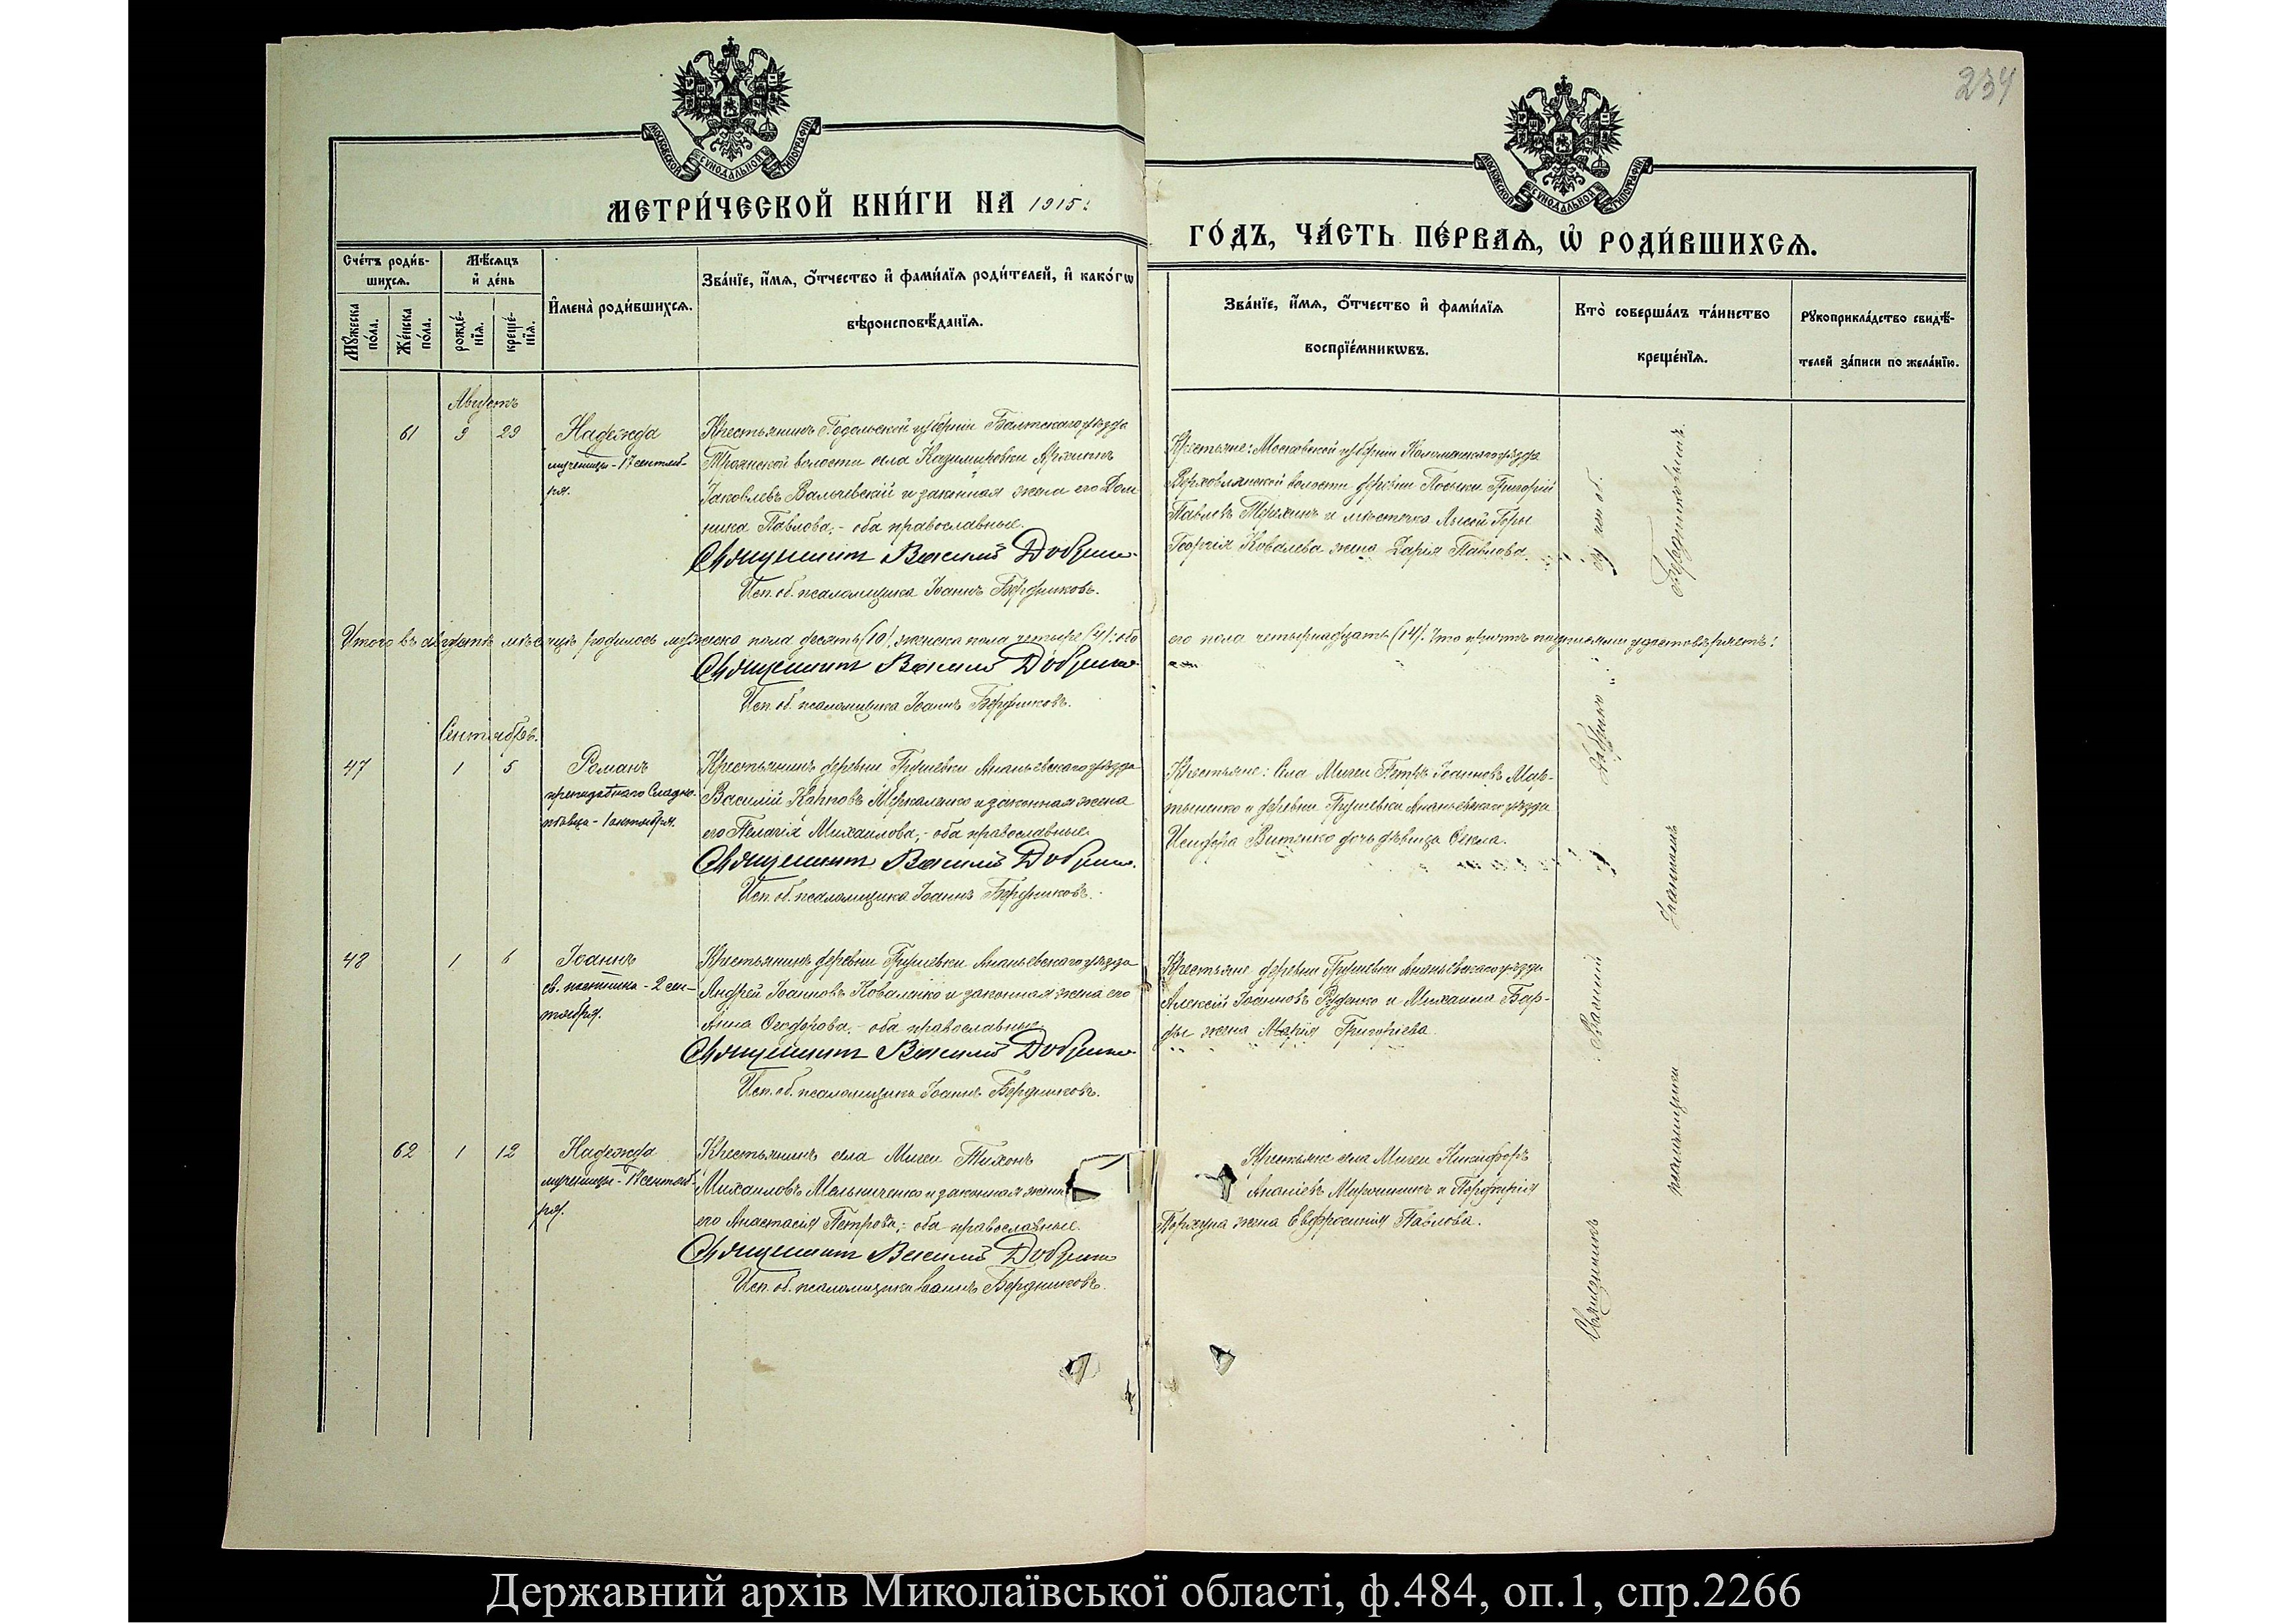 234
МОСКОВСКОЙ СѴНОДАЛЬНОЙ ТИПОГРАФІИ
МОСКОВСКОЙ СѴНОДАЛЬНОЙ ТИПОГРАФІИ
МЕТРИ́ЧЕСКОЙ КНИ́ГИ НА 1915:
ГО́ДЪ, ЧА́СТЬ ПЕ́РВАѦ, Ѡ҆ РОДИ́ВШИХСѦ.
Сче́тъ роди́в-
шихсѧ.
Мꙋ́жеска по́ла.
Же́нска по́ла.
Мѣ́сѧцъ
и҆ де́нь
рожде́-
нїѧ.
креще́-
нїѧ.
И҆мена̀ роди́вшихсѧ.
Зва́нїе, и҆́мѧ, ѻ҆́тчество и҆ фами́лїѧ роди́телей, и҆ како́гѡ
вѣроисповѣ́данїѧ.
Зва́нїе, и҆́мѧ, ѻ҆́тчество и҆ фами́лїѧ
воспрїе́мникѡвъ.
Кто̀ соверша́лъ та́инство
креще́нїѧ.
Рꙋкоприкла́дство свидѣ́-
телей за́писи по жела́нїю.
Августъ
61 3 29 Надежда
мученицы - 17 сентяб-
ря.
Крестьянинъ Подольской губерніи Балтскаго уѣзда
Троянской волости села Казимировки Архиппъ
Іаковлевъ Вальчевскій и законная жена его Дом-
ника Павлова, - оба православные.
Священникъ Василій Добрин
Исп. об. псаломщика Іоаннъ Бердниковъ.
Крестьяне: Московской губерніи Коломенскаго уѣзда
Верховлянской волости деревни Григорій
Павловъ и мѣстечка Лысой Горы
Георгія Ковалева жена Дарія Павлова.
Итого въ августѣ мѣсяцѣ родилось мужеска пола десять (10), женска пола четыре (4); обо
его пола четырнадцать (14). Что причтъ подписями удостовѣряетъ:
Священникъ Василій Добрин
Исп. об. псаломщика Іоаннъ Бердниковъ.
Сентябрь.
47 1 5 Романъ
преподобнаго Сладко-
пѣвца - 1 октября.
Крестьянинъ деревни Грушевки Ананьевскаго уѣзда
Василій Карповъ Меркаленко и законная жена
его Пелагія Михаилова, - оба православные.
Священникъ Василій Добрин
Исп. об. псаломщика Іоаннъ Бердниковъ.
Крестьяне: села Мигеи Петръ Іоанновъ Мар-
тыненко и деревни Грушевки Ананьевскаго уѣзда
Исидора Витенко дочь дѣвица Ѳекла.
48 1 6 Іоаннъ
св. постника - 2 сен-
тября.
Крестьянинъ деревни Грушевки Ананьевскаго уѣзда
Андрей Іоанновъ Коваленко и законная жена его
Анна Ѳеодорова, - оба православные.
Священникъ Василій Добрин
Исп. об. псаломщика Іоаннъ Бердниковъ.
Крестьяне деревни Грушевки Ананьевскаго уѣзда
Алексій Іоанновъ Руденко и Михаила Бар-
ды жена Марія Григоріева.
62 1 12 Надежда
мученицы - 17 сентяб-
ря.
Крестьянинъ села Мигеи Тихонъ
Михаиловъ Мельниченко и законная жена
его Анастасія Петрова, - оба православные.
Священникъ Василій Добрин
Исп. об. псаломщика Іоаннъ Бердниковъ.
Крестьяне села Мигеи Никифоръ
Ананіевъ Мирошникъ и Порфирія
жена Евфросинія Павлова.
Священникъ Василій съ исп. об.
псаломщика Іоанномъ Бердниковымъ.
Державний архів Миколаївської області, ф.484, оп.1, спр.2266